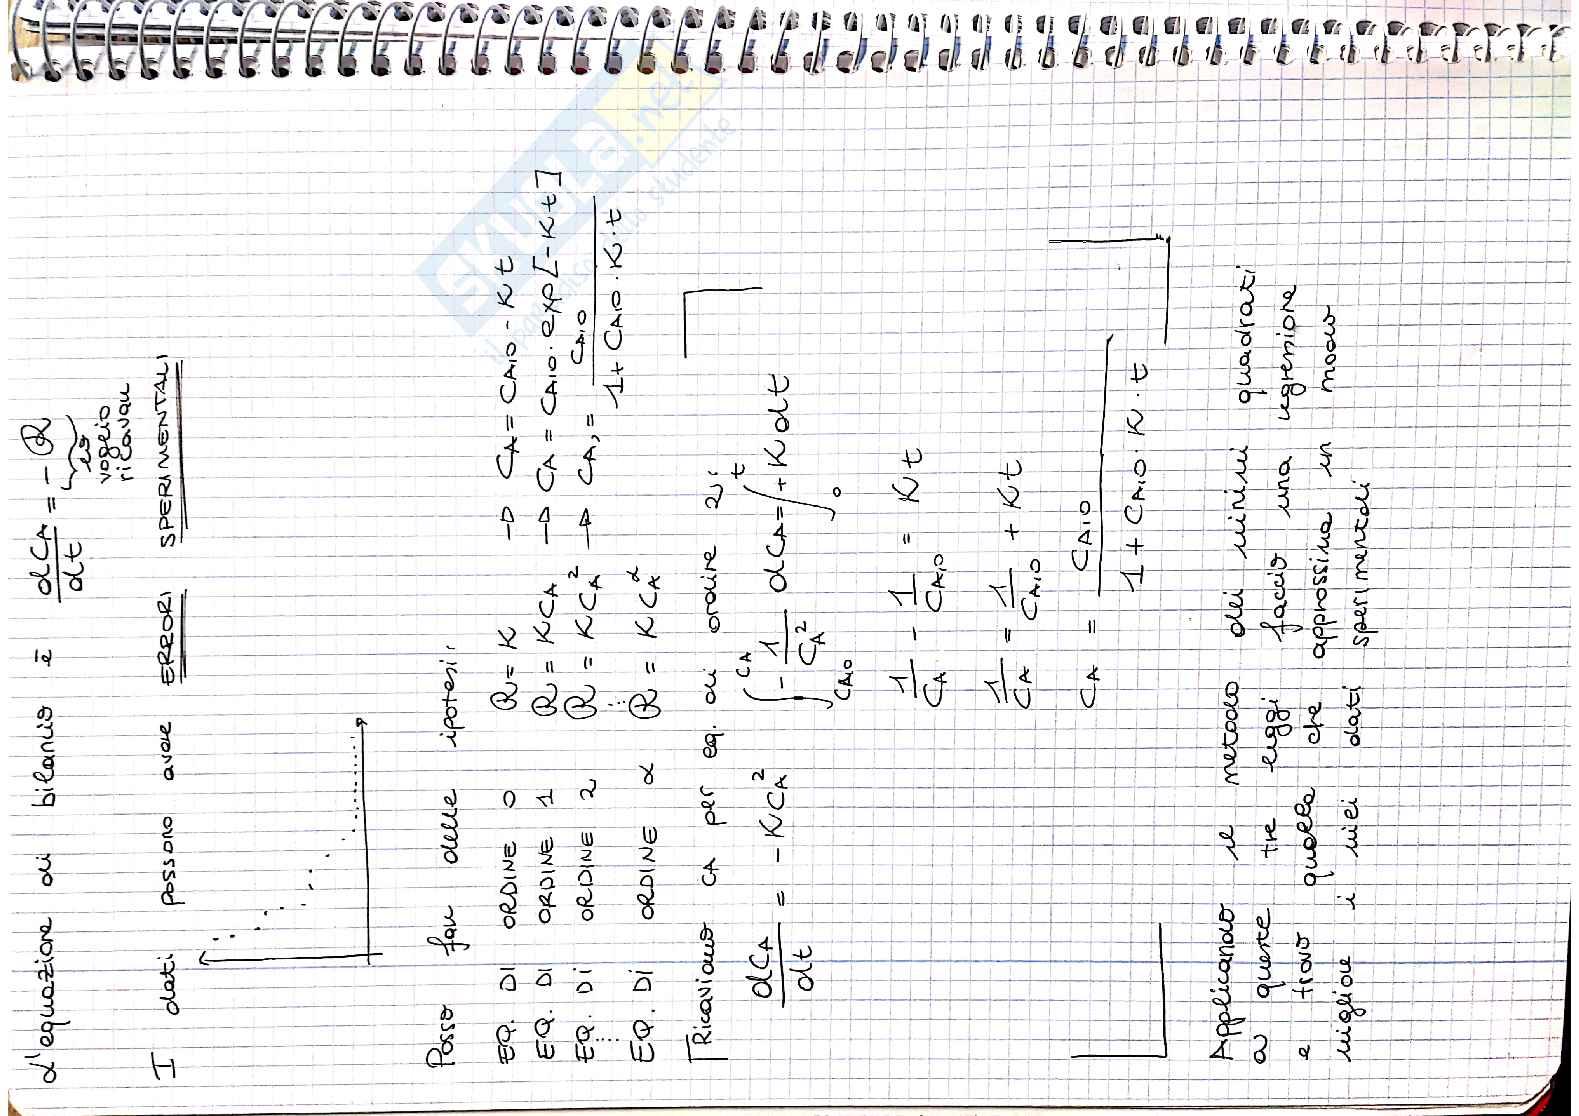 L'equazione di bilancio è dCA/dt = -R
lo
voglio
ricavare
I dati possono avere ERRORI SPERIMENTALI
Posso fare delle ipotesi:
EQ. DI ORDINE 0 R = K → CA = CA,0 - Kt
EQ. DI ORDINE 1 R = KCA → CA = CA,0 · exp[-Kt]
EQ. DI ORDINE 2 R = KCA² → CA, = CA,0 / 1 + CA,0 · K · t
⋮ ⋮
EQ. DI ORDINE α R = KCA^α
Ricaviamo CA per eq. di ordine 2:
dCA/dt = -KCA² ∫CA,0^CA -1/CA² dCA = ∫0^t +K dt
1/CA - 1/CA,0 = Kt
1/CA = 1/CA,0 + Kt
CA = CA,0 / 1 + CA,0 · K · t
Applicando il metodo dei minimi quadrati
a queste tre leggi faccio una regressione
e trovo quella che approssima in modo
migliore i miei dati sperimentali
SKUOLA.net
il paradiso dello studente